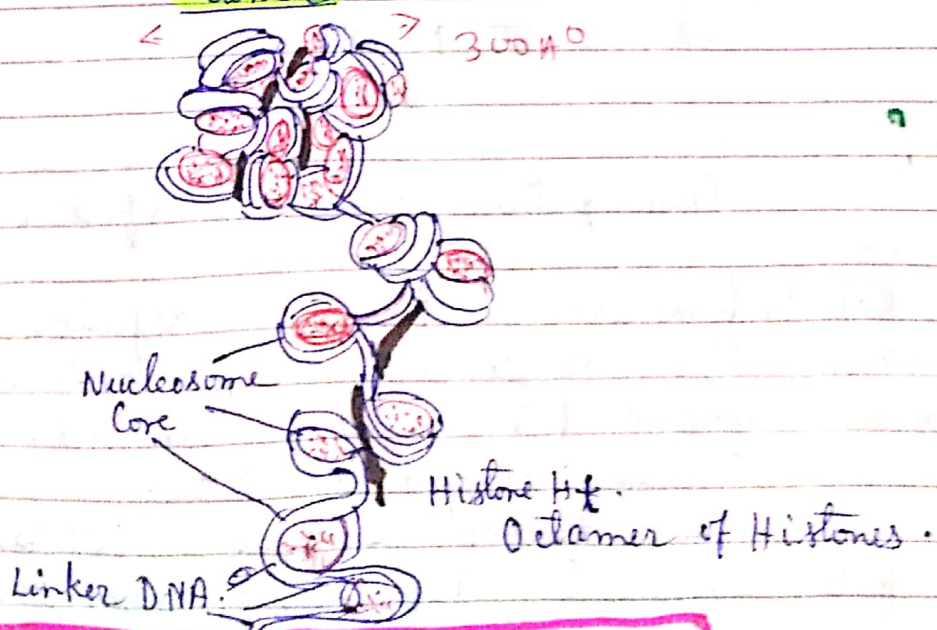 300A°
Nucleosome
Core
Histone H1.
Octamer of Histones.
Linker DNA.